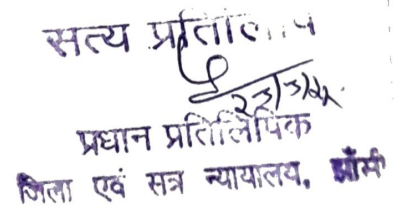 सत्य प्रतिलिपि
प्रधान प्रतिलिपिक
जिला एवं सत्र न्यायालय, झाँसी